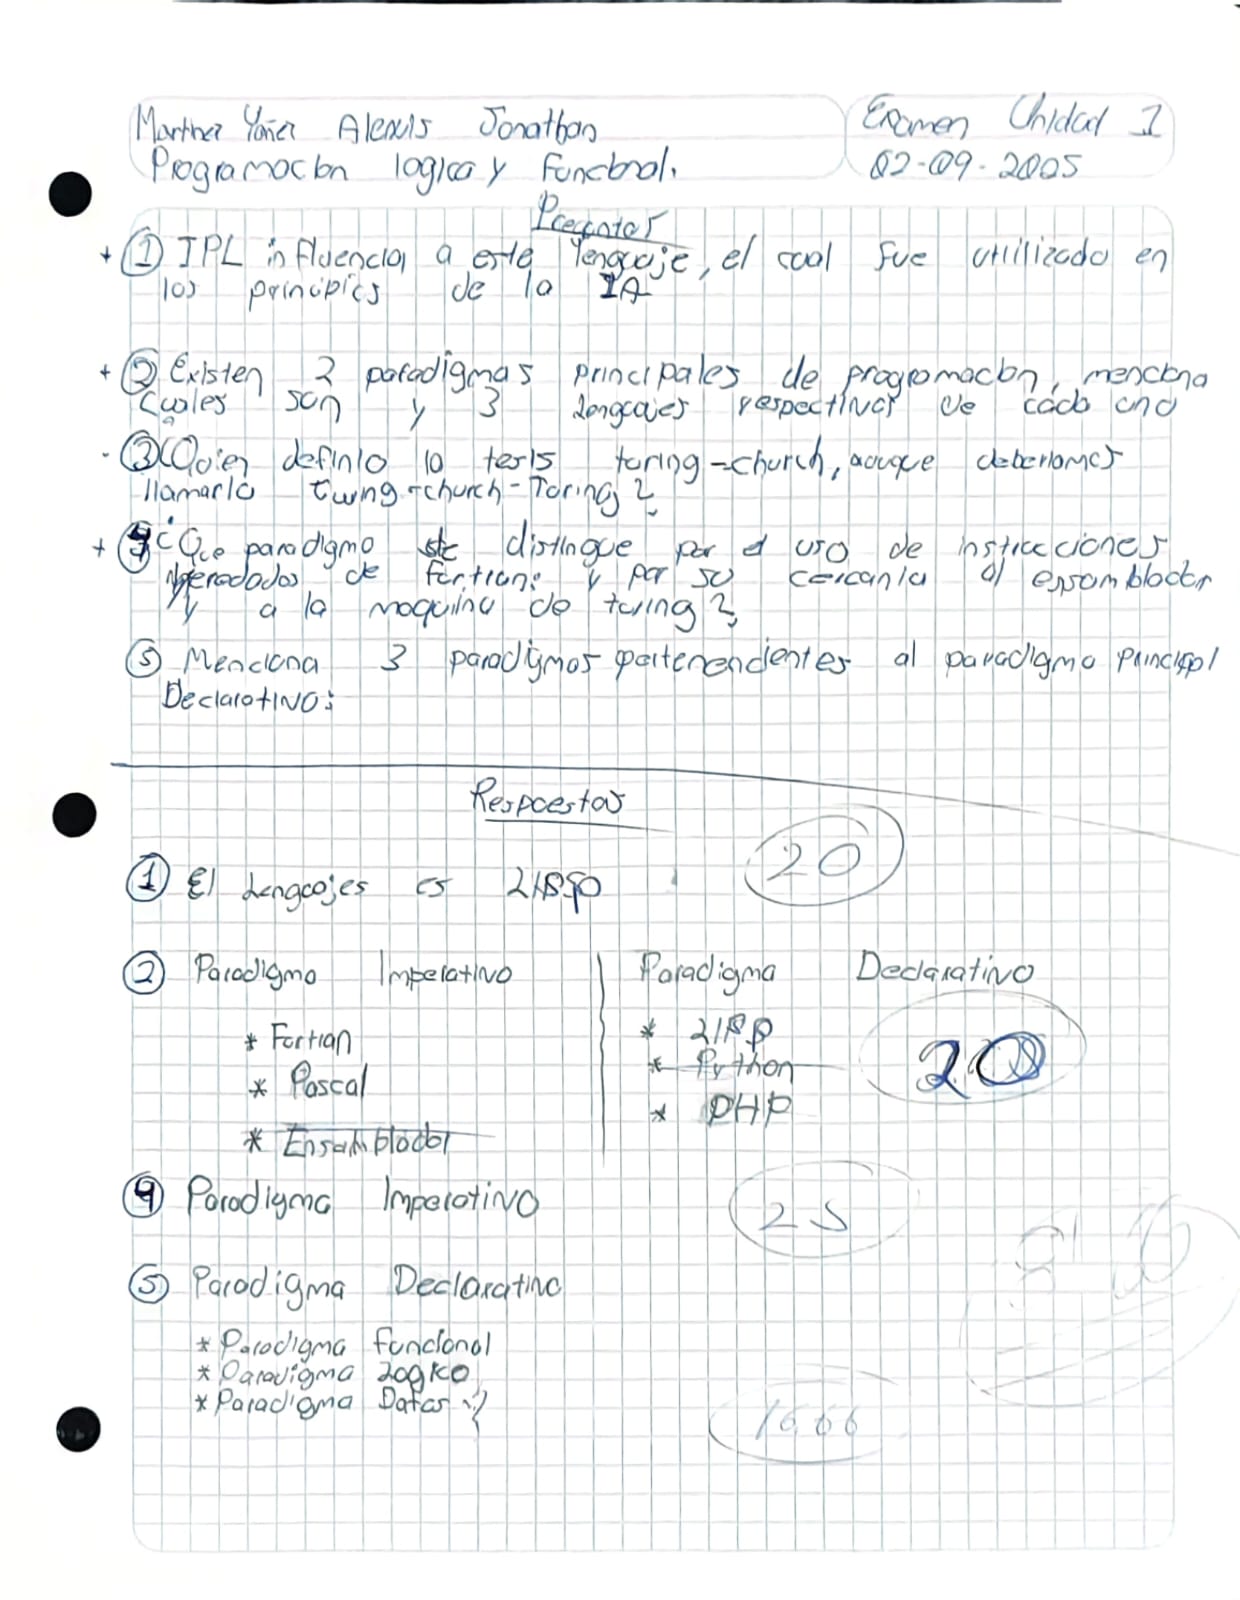 Martinez Yañez Alexis Jonathan
Programacion logica y Funcional.
Examen Unidad 1
02-09-2005
Preguntas
+ ① IPL influencio, a este lenguaje, el cual fue utilizado en
los principios de la IA
+ ② Existen 2 paradigmas principales de programacion, menciona
cuales son y 3 Lenguajes respectivos de cada uno
- ③ ¿Quien definio la tesis turing-church, auque deberiamos
llamarla turing-church-Turing?
+ ④ ¿Que paradigma se distingue por el uso de instrucciones
heredadas de fortran: y por su cercania al essamblador
y a la maquina de turing?
⑤ Menciona 3 paradigmos pertenendientes al paradigma principal
Declarativo:
Respuestas
20
① El Lenguajes es LISP
② Paradigma Imperativo
Paradigma Declarativo
* Fortran
* LISP
* Pascal
* Python
20
* Ensamblador
* PHP
④ Paradigma Imperativo
25
⑤ Paradigma Declarativo
* Paradigma funcional
* Paradigma Logico
* Paradigma Datos
16.66